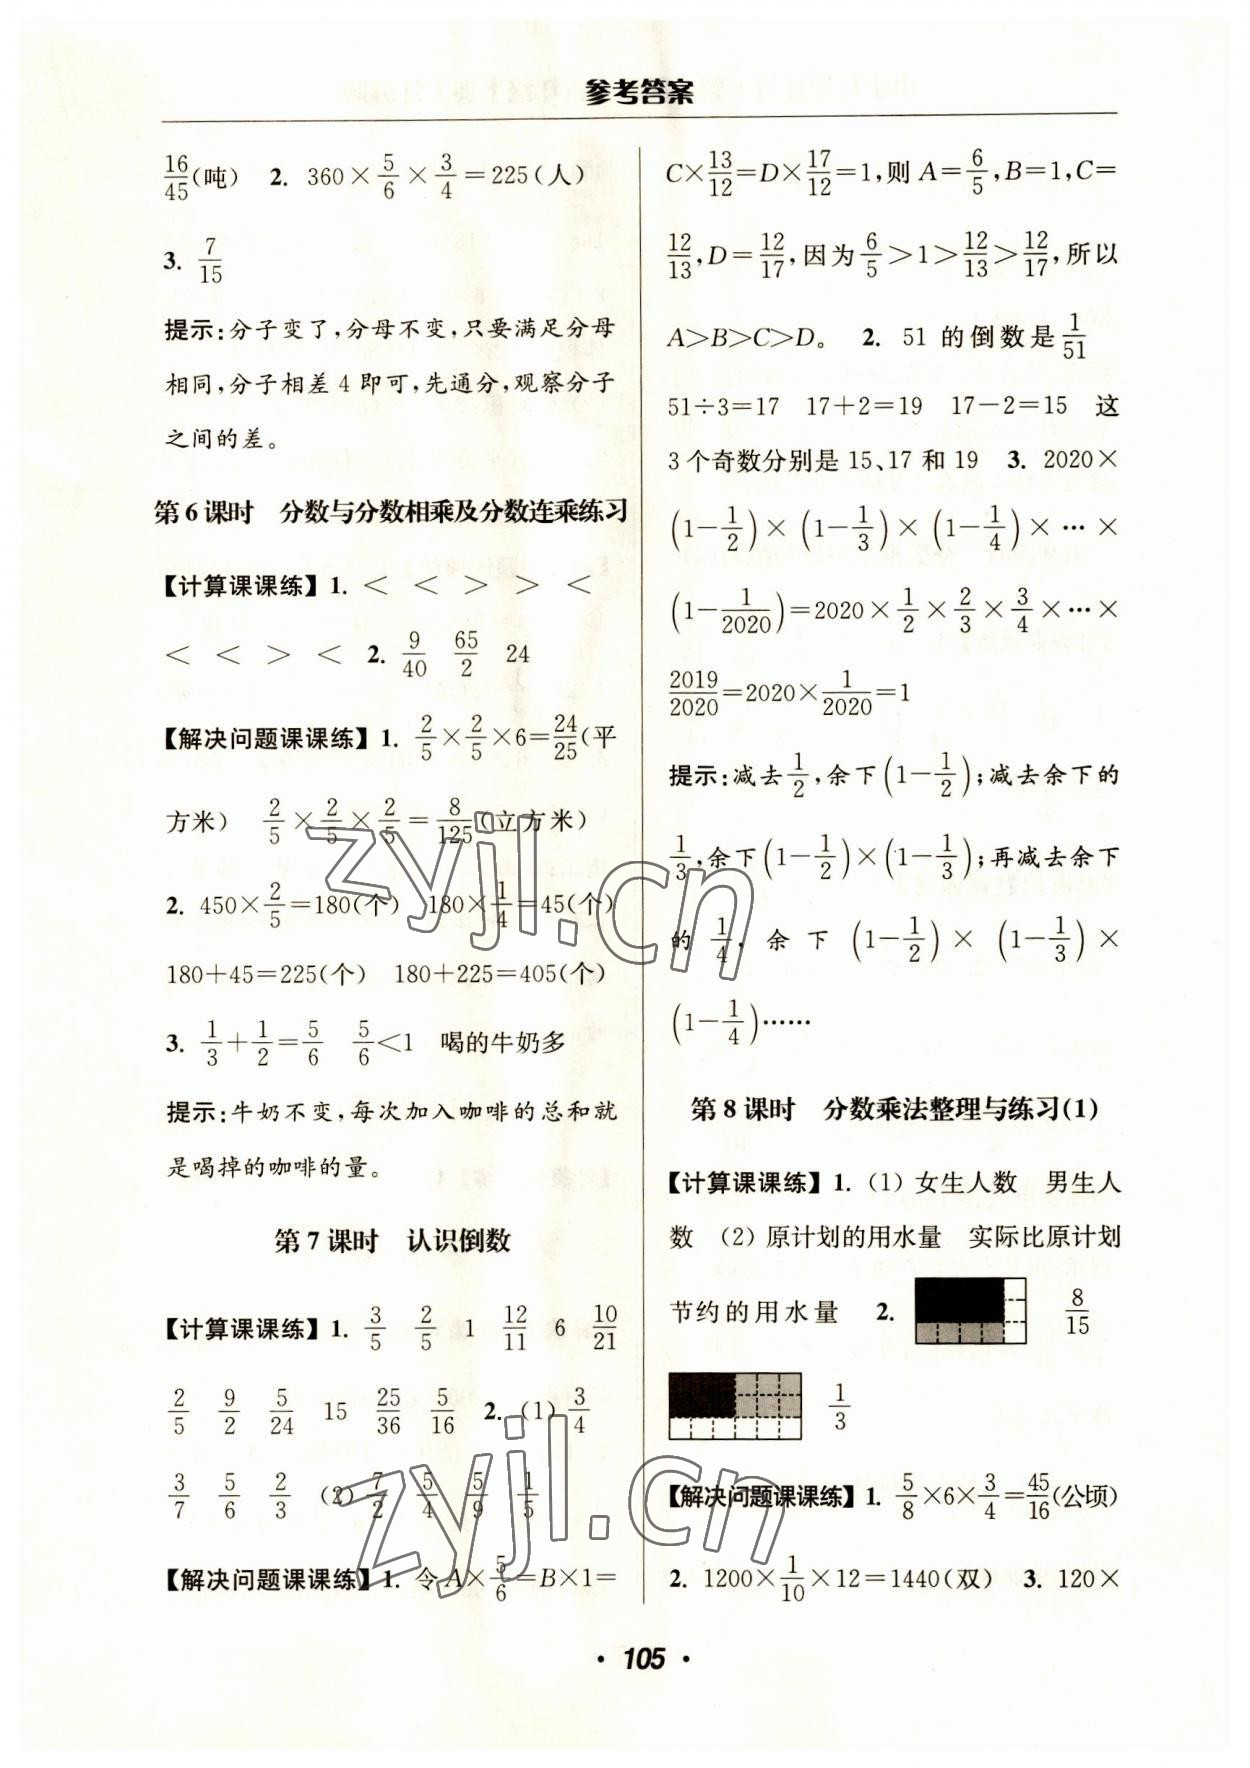 参考答案
16/45(吨) 2. 360×5/6×3/4=225(人)
3. 7/15
提示:分子变了,分母不变,只要满足分母
相同,分子相差4即可,先通分,观察分子
之间的差。
第6课时 分数与分数相乘及分数连乘练习
【计算课课练】1. < < > > <
< < > < 2. 9/40 65/2 24
【解决问题课课练】1. 2/5×2/5×6=24/25(平
方米) 2/5×2/5×2/5=8/125(立方米)
2. 450×2/5=180(个) 180×1/4=45(个)
180+45=225(个) 180+225=405(个)
3. 1/3+1/2=5/6 5/6<1 喝的牛奶多
提示:牛奶不变,每次加入咖啡的总和就
是喝掉的咖啡的量。
第7课时 认识倒数
【计算课课练】1. 3/5 2/5 1 12/11 6 10/21
2/5 9/2 5/24 15 25/36 5/16 2. (1)3/4
3/7 5/6 2/3 (2)7/2 5/4 5/9 1/5
【解决问题课课练】1. 令A×5/6=B×1=
C×13/12=D×17/12=1,则A=6/5,B=1,C=
12/13,D=12/17,因为6/5>1>12/13>12/17,所以
A>B>C>D。 2. 51的倒数是1/51
51÷3=17 17+2=19 17-2=15 这
3个奇数分别是15、17和19 3. 2020×
(1-1/2)×(1-1/3)×(1-1/4)×…×
(1-1/2020)=2020×1/2×2/3×3/4×…×
2019/2020=2020×1/2020=1
提示:减去1/2,余下(1-1/2);减去余下的
1/3,余下(1-1/2)×(1-1/3);再减去余下
的1/4,余下(1-1/2)×(1-1/3)×
(1-1/4)……
第8课时 分数乘法整理与练习(1)
【计算课课练】1. (1)女生人数 男生人
数 (2)原计划的用水量 实际比原计划
节约的用水量 2. 8/15
1/3
【解决问题课课练】1. 5/8×6×3/4=45/16(公顷)
2. 1200×1/10×12=1440(双) 3. 120×
• 105 •
zyjl.cn
zyjl.cn